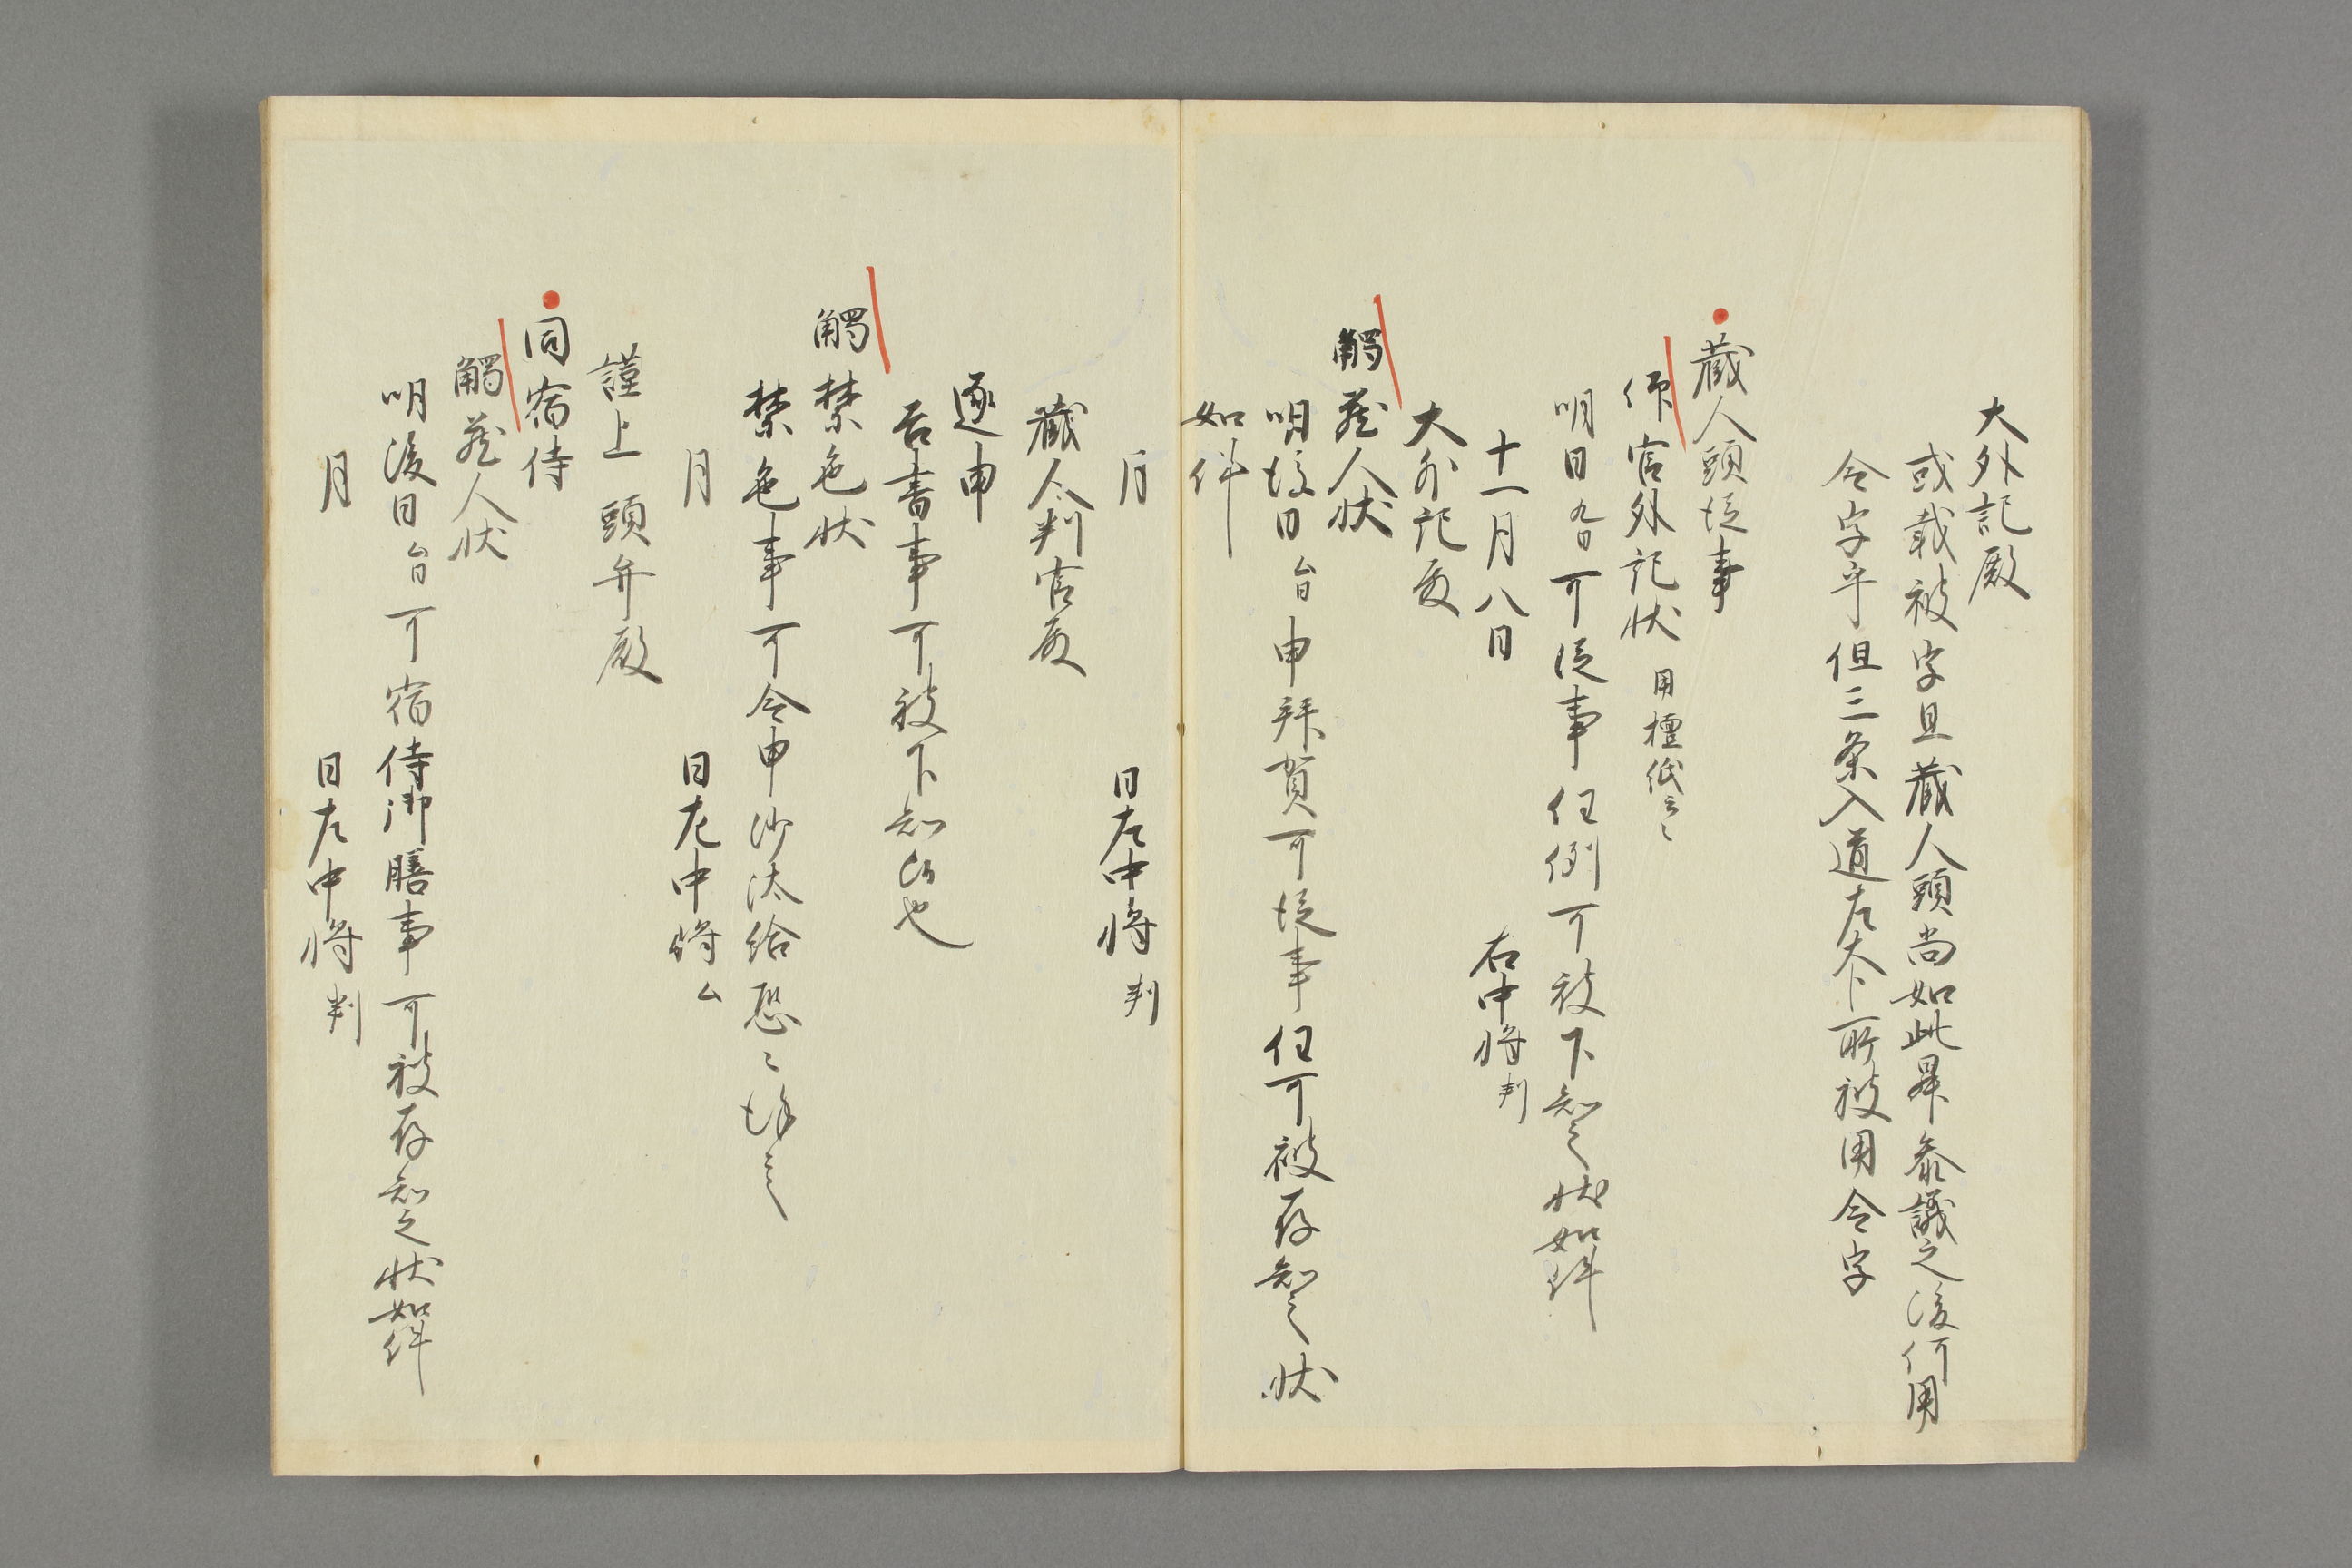 大外記殿
或載被字且蔵人頭尚如此昇参議之後何用
令字乎但三条入道左大卜所被用令字
蔵人頭従事
仰官外記状 用檀紙云々
明日九日可従事任例可被下知之状如件
十一月八日 右中将判
大外記殿
觸蔵人状
明後日台日申拜賀可従事任可被存知之状
如件
月 日左中将判
蔵人判官殿
逐申
吉書事可被下知候也
觸禁色状
禁色事可令申沙汰給恐々謹言
月 日左中将ム
謹上 頭弁殿
同宿侍
觸蔵人状
明後日台日可宿侍御膳事可被存知之状如件
月 日左中将判